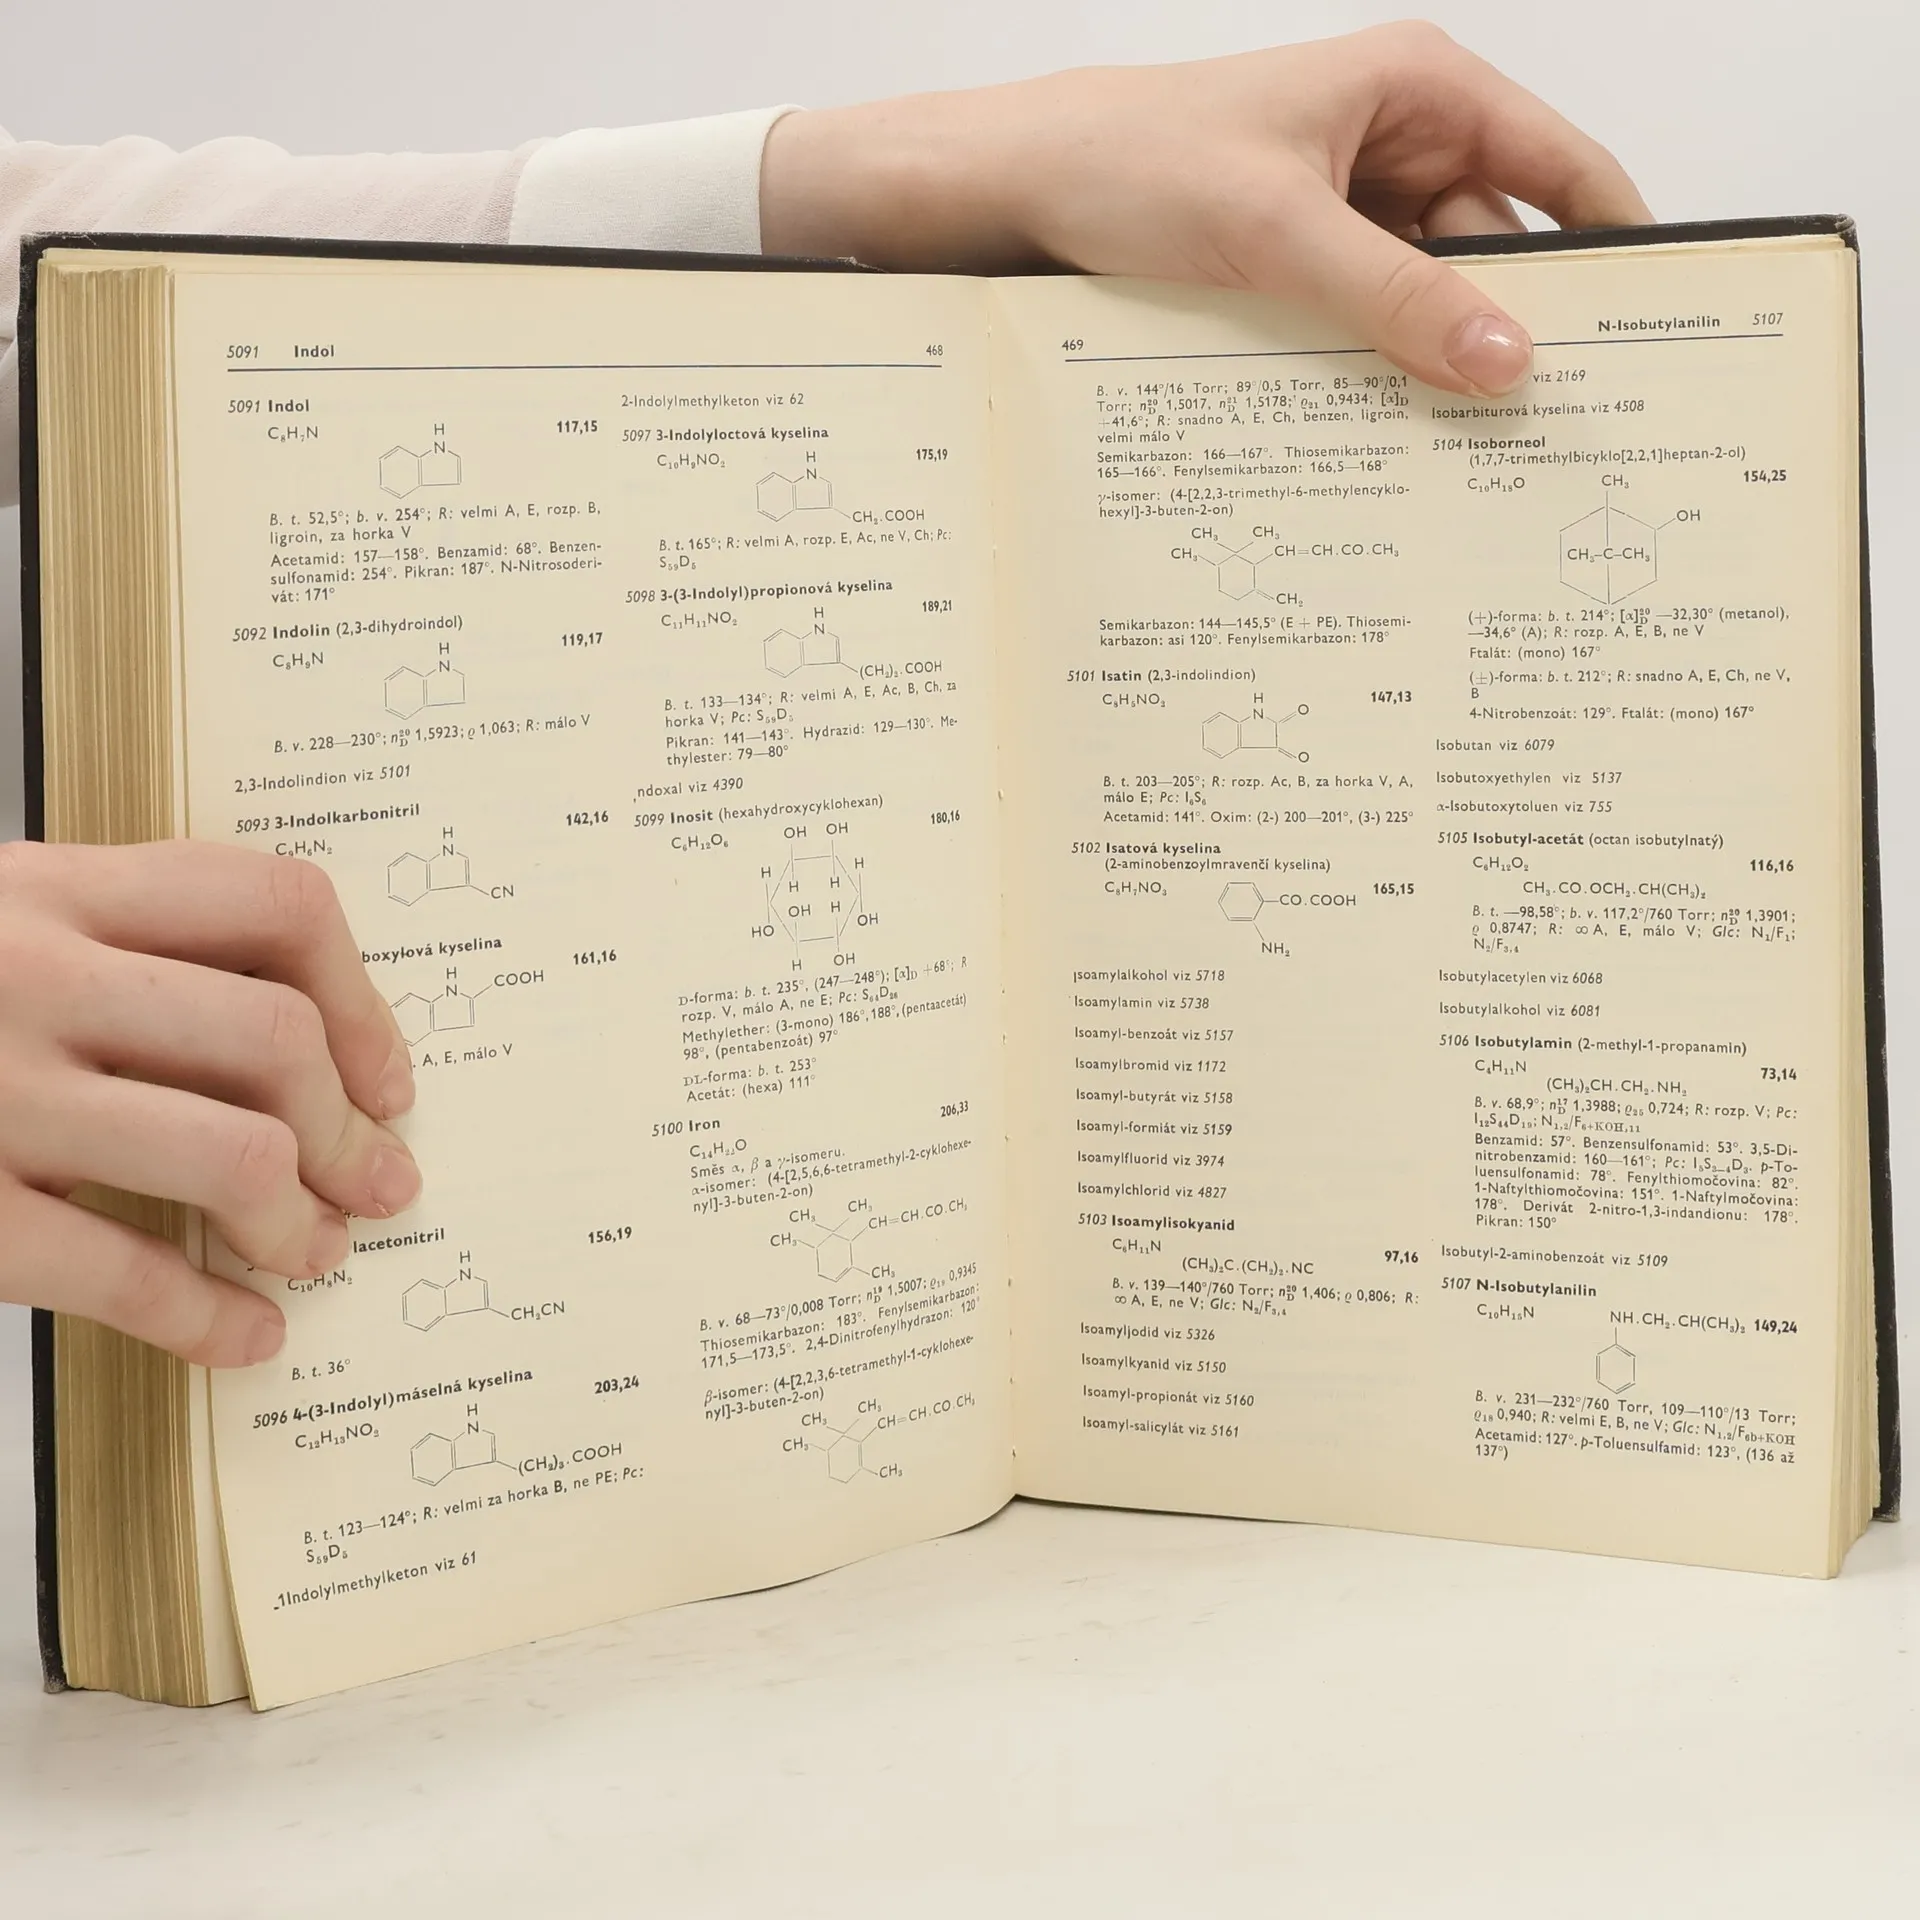 5091 Indol 468
5091 Indol
C₈H₇N 117,15
H
N
B. t. 52,5°; b. v. 254°; R: velmi A, E, rozp. B,
ligroin, za horka V
Acetamid: 157—158°. Benzamid: 68°. Benzen-
sulfonamid: 254°. Pikran: 187°. N-Nitrosoderi-
vát: 171°
5092 Indolin (2,3-dihydroindol)
C₈H₉N 119,17
H
N
B. v. 228—230°; n²⁰D 1,5923; ϱ 1,063; R: málo V
2,3-Indolindion viz 5101
5093 3-Indolkarbonitril
C₉H₆N₂ 142,16
H
N
CN
boxylová kyselina
161,16
H
N
COOH
A, E, málo V
lacetonitril
C₁₀H₈N₂ 156,19
H
N
CH₂CN
B. t. 36°
5096 4-(3-Indolyl)máselná kyselina
C₁₂H₁₃NO₂ 203,24
H
N
(CH₂)₃.COOH
B. t. 123—124°; R: velmi za horka B, ne PE; Pc:
S₅₉D₅
1Indolylmethylketon viz 61
2-Indolylmethylketon viz 62
5097 3-Indolyloctová kyselina
C₁₀H₉NO₂ 175,19
H
N
CH₂.COOH
B. t. 165°; R: velmi A, rozp. E, Ac, ne V, Ch; Pc:
S₅₉D₅
5098 3-(3-Indolyl)propionová kyselina
C₁₁H₁₁NO₂ 189,21
H
N
(CH₂)₂.COOH
B. t. 133—134°; R: velmi A, E, Ac, B, Ch, za
horka V; Pc: S₅₉D₅
Pikran: 141—143°. Hydrazid: 129—130°. Me-
thylester: 79—80°
ndoxal viz 4390
5099 Inosit (hexahydroxycyklohexan)
C₆H₁₂O₆ 180,16
OH OH
H H
H H
OH H
HO OH
H OH
D-forma: b. t. 235°, (247—248°); [α]D +68°; R
rozp. V, málo A, ne E; Pc: S₆₄D₂₆
Methylether: (3-mono) 186°, 188°, (pentaacetát)
98°, (pentabenzoát) 97°
DL-forma: b. t. 253°
Acetát: (hexa) 111°
5100 Iron 206,33
C₁₄H₂₂O
Směs α, β a γ-isomeru.
α-isomer: (4-[2,5,6,6-tetramethyl-2-cyklohexe-
nyl]-3-buten-2-on)
CH₃ CH₃
CH₃ CH=CH.CO.CH₃
CH₃
B. v. 68—73°/0,008 Torr; n¹⁹D 1,5007; ϱ₁₉ 0,9345
Thiosemikarbazon: 183°. Fenylsemikarbazon:
171,5—173,5°. 2,4-Dinitrofenylhydrazon: 120°
β-isomer: (4-[2,2,3,6-tetramethyl-1-cyklohexe-
nyl]-3-buten-2-on)
CH₃ CH₃
CH₃ CH=CH.CO.CH₃
CH₃
469 N-Isobutylanilin 5107
B. v. 144°/16 Torr; 89°/0,5 Torr, 85—90°/0,1
Torr; n²⁰D 1,5017, n²¹D 1,5178; ϱ₂₁ 0,9434; [α]D
+41,6°; R: snadno A, E, Ch, benzen, ligroin,
velmi málo V
Semikarbazon: 166—167°. Thiosemikarbazon:
165—166°. Fenylsemikarbazon: 166,5—168°
γ-isomer: (4-[2,2,3-trimethyl-6-methylencyklo-
hexyl]-3-buten-2-on)
CH₃ CH₃
CH₃ CH=CH.CO.CH₃
CH₂
Semikarbazon: 144—145,5° (E + PE). Thiosemi-
karbazon: asi 120°. Fenylsemikarbazon: 178°
5101 Isatin (2,3-indolindion)
C₈H₅NO₂ 147,13
H
N O
O
B. t. 203—205°; R: rozp. Ac, B, za horka V, A,
málo E; Pc: I₆S₆
Acetamid: 141°. Oxim: (2-) 200—201°, (3-) 225°
5102 Isatová kyselina
(2-aminobenzoylmravenčí kyselina)
C₈H₇NO₃ 165,15
CO.COOH
NH₂
Isoamylalkohol viz 5718
Isoamylamin viz 5738
Isoamyl-benzoát viz 5157
Isoamylbromid viz 1172
Isoamyl-butyrát viz 5158
Isoamyl-formiát viz 5159
Isoamylfluorid viz 3974
Isoamylchlorid viz 4827
5103 Isoamylisokyanid
C₆H₁₁N 97,16
(CH₃)₂C.(CH₂)₂.NC
B. v. 139—140°/760 Torr; n²⁰D 1,406; ϱ 0,806; R:
∞ A, E, ne V; Glc: N₂/F₃,₄
Isoamyljodid viz 5326
Isoamylkyanid viz 5150
Isoamyl-propionát viz 5160
Isoamyl-salicylát viz 5161
viz 2169
Isobarbiturová kyselina viz 4508
5104 Isoborneol
(1,7,7-trimethylbicyklo[2,2,1]heptan-2-ol)
C₁₀H₁₈O 154,25
CH₃
OH
CH₃–C–CH₃
(+)-forma: b. t. 214°; [α]²⁰D —32,30° (metanol),
—34,6° (A); R: rozp. A, E, B, ne V
Ftalát: (mono) 167°
(±)-forma: b. t. 212°; R: snadno A, E, Ch, ne V,
B
4-Nitrobenzoát: 129°. Ftalát: (mono) 167°
Isobutan viz 6079
Isobutoxyethylen viz 5137
α-Isobutoxytoluen viz 755
5105 Isobutyl-acetát (octan isobutylnatý)
C₆H₁₂O₂ 116,16
CH₃.CO.OCH₂.CH(CH₃)₂
B. t. —98,58°; b. v. 117,2°/760 Torr; n²⁰D 1,3901;
ϱ 0,8747; R: ∞ A, E, málo V; Glc: N₁/F₁;
N₂/F₃,₄
Isobutylacetylen viz 6068
Isobutylalkohol viz 6081
5106 Isobutylamin (2-methyl-1-propanamin)
C₄H₁₁N 73,14
(CH₃)₂CH.CH₂.NH₂
B. v. 68,9°; n¹⁷D 1,3988; ϱ₂₅ 0,724; R: rozp. V; Pc:
I₁₂S₄₄D₁₉; N₁,₂/F₆₊KOH,₁₁
Benzamid: 57°. Benzensulfonamid: 53°. 3,5-Di-
nitrobenzamid: 160—161°; Pc: I₅S₃₋₄D₃. p-To-
luensulfonamid: 78°. Fenylthiomočovina: 82°.
1-Naftylthiomočovina: 151°. 1-Naftylmočovina:
178°. Derivát 2-nitro-1,3-indandionu: 178°.
Pikran: 150°
Isobutyl-2-aminobenzoát viz 5109
5107 N-Isobutylanilin
C₁₀H₁₅N NH.CH₂.CH(CH₃)₂ 149,24
B. v. 231—232°/760 Torr, 109—110°/13 Torr;
ϱ₁₈ 0,940; R: velmi E, B, ne V; Glc: N₁,₂/F₆b+KOH
Acetamid: 127°. p-Toluensulfamid: 123°, (136 až
137°)